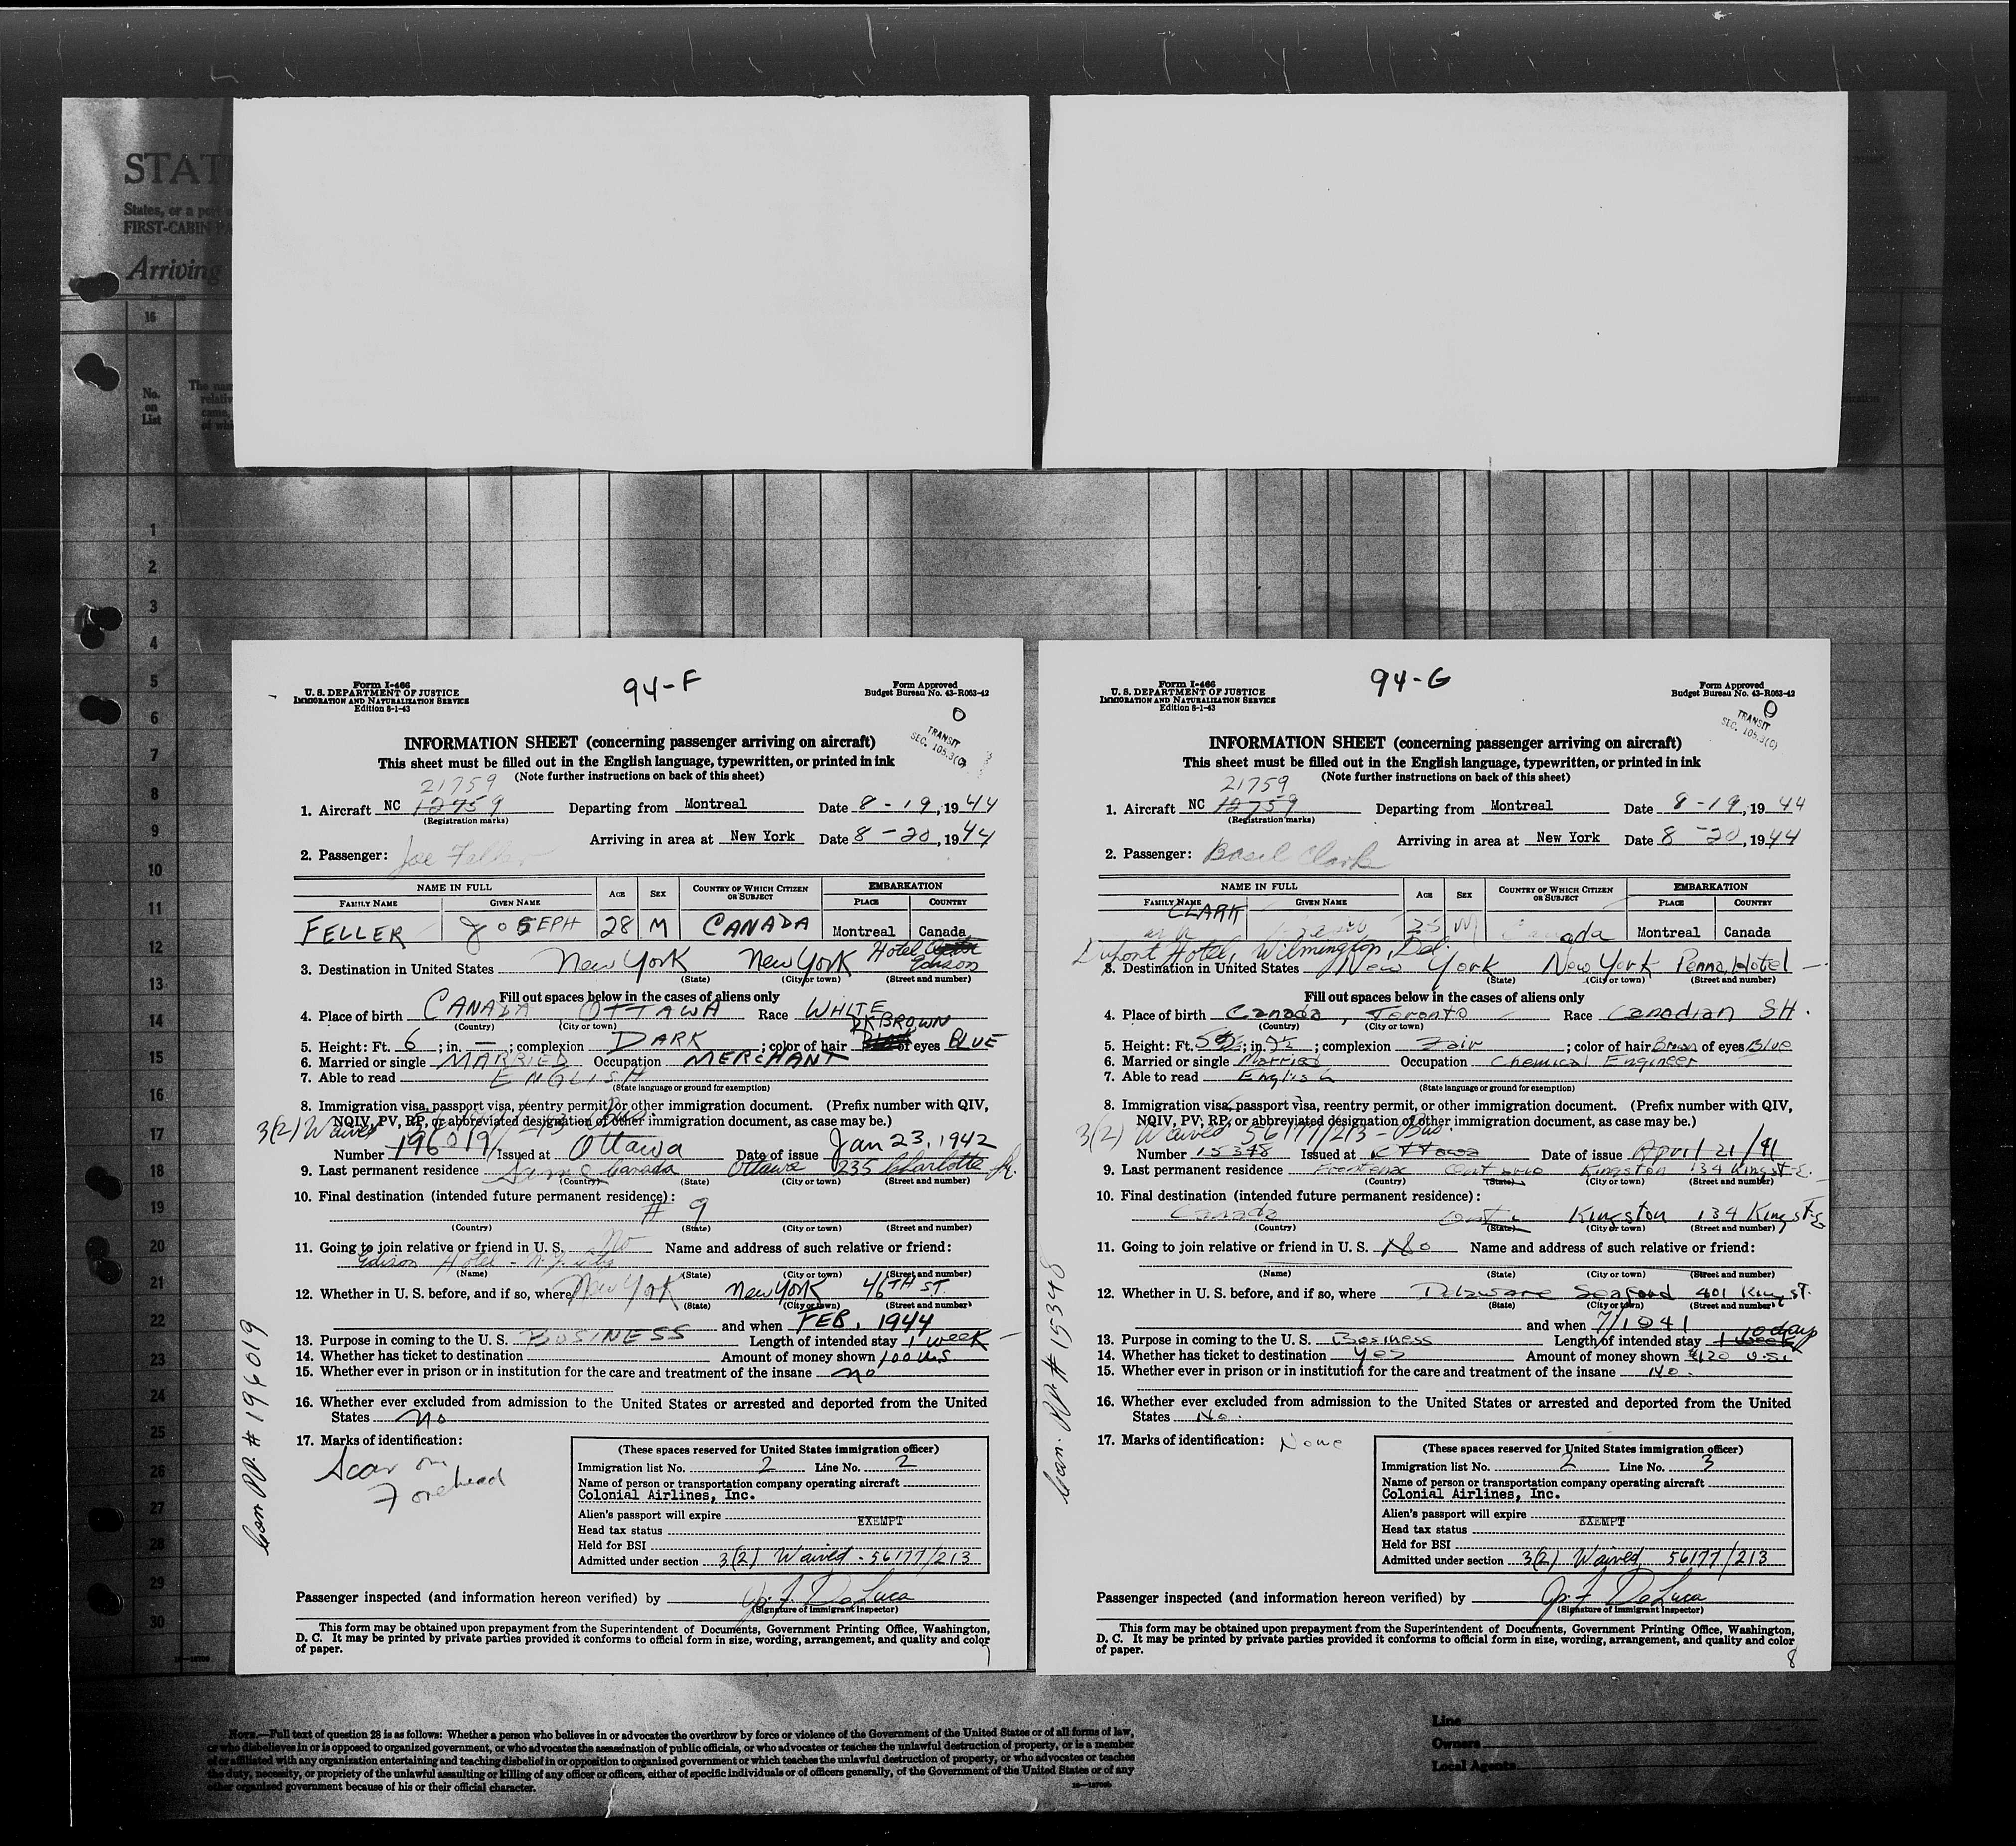 STAT
States, or a port
FIRST-CABIN PA
Arriving
16
No.
on
List
The nam
relativ
came,
of whi
1
2
3
4
5
6
7
8
9
10
11
12
13
14
15
16
17
18
19
20
21
22
23
24
25
26
27
28
29
30
Form I-466
U. S. DEPARTMENT OF JUSTICE
IMMIGRATION AND NATURALIZATION SERVICE
Edition 8-1-43
94-F
Form Approved
Budget Bureau No. 43-R063-42
0
TRANSIT
SEC. 105.3(C)
INFORMATION SHEET (concerning passenger arriving on aircraft)
This sheet must be filled out in the English language, typewritten, or printed in ink
(Note further instructions on back of this sheet)
21759
1. Aircraft NC 12759 Departing from Montreal Date 8-19, 1944
(Registration marks)
Arriving in area at New York Date 8-20, 1944
2. Passenger: Joe Feller
NAME IN FULL AGE SEX COUNTRY OF WHICH CITIZEN OR SUBJECT EMBARKATION
FAMILY NAME GIVEN NAME PLACE COUNTRY
FELLER JOSEPH 28 M CANADA Montreal Canada
Hotel
Edison
3. Destination in United States New York New York
(State) (City or town) (Street and number)
Fill out spaces below in the cases of aliens only
4. Place of birth CANADA OTTAWA Race WHITE
(Country) (City or town)
DK BROWN
5. Height: Ft. 6 ; in. — ; complexion DARK ; color of hair of eyes BLUE
6. Married or single MARRIED Occupation MERCHANT
7. Able to read ENGLISH
(State language or ground for exemption)
8. Immigration visa, passport visa, reentry permit, or other immigration document. (Prefix number with QIV,
NQIV, PV, RP, or abbreviated designation of other immigration document, as case may be.)
3(2) Waived
Number 196019 Issued at Ottawa Date of issue Jan 23, 1942
9. Last permanent residence Same Canada Ottawa 235 Charlotte St.
(Country) (State) (City or town) (Street and number)
10. Final destination (intended future permanent residence):
# 9
(Country) (State) (City or town) (Street and number)
11. Going to join relative or friend in U. S. No Name and address of such relative or friend:
Edison Hotel - N.Y.
(Name) (State) (City or town) (Street and number)
12. Whether in U. S. before, and if so, where New York New York 46TH ST.
(State) (City or town) (Street and number)
and when FEB. 1944
13. Purpose in coming to the U. S. BUSINESS Length of intended stay 1 week
14. Whether has ticket to destination Amount of money shown 100 U.S
15. Whether ever in prison or in institution for the care and treatment of the insane no
16. Whether ever excluded from admission to the United States or arrested and deported from the United
States no
17. Marks of identification:
Scar on
Forehead
(These spaces reserved for United States immigration officer)
Immigration list No. 2 Line No. 2
Name of person or transportation company operating aircraft
Colonial Airlines, Inc.
Alien's passport will expire
EXEMPT
Head tax status
Held for BSI
Admitted under section 3(2) Waived - 56177/213
Passenger inspected (and information hereon verified) by J. F. DeLuca
(Signature of Immigrant Inspector)
This form may be obtained upon prepayment from the Superintendent of Documents, Government Printing Office, Washington,
D. C. It may be printed by private parties provided it conforms to official form in size, wording, arrangement, and quality and color
of paper.
7
Can PP. # 196019
Form I-466
U. S. DEPARTMENT OF JUSTICE
IMMIGRATION AND NATURALIZATION SERVICE
Edition 8-1-43
94-G
Form Approved
Budget Bureau No. 43-R063-42
0
TRANSIT
SEC. 105.3(C)
INFORMATION SHEET (concerning passenger arriving on aircraft)
This sheet must be filled out in the English language, typewritten, or printed in ink
(Note further instructions on back of this sheet)
21759
1. Aircraft NC 12759 Departing from Montreal Date 8-19, 1944
(Registration marks)
Arriving in area at New York Date 8-20, 1944
2. Passenger: Basil Clark
NAME IN FULL AGE SEX COUNTRY OF WHICH CITIZEN OR SUBJECT EMBARKATION
FAMILY NAME GIVEN NAME PLACE COUNTRY
CLARK 25 M Canada Montreal Canada
Dupont Hotel, Wilmington, Del.
3. Destination in United States New York New York Penna. Hotel
(State) (City or town) (Street and number)
Fill out spaces below in the cases of aliens only
4. Place of birth Canada, Toronto Race Canadian SH.
(Country) (City or town)
5. Height: Ft. ; in. ; complexion Fair ; color of hair Brown of eyes Blue
6. Married or single Married Occupation Chemical Engineer
7. Able to read English
(State language or ground for exemption)
8. Immigration visa, passport visa, reentry permit, or other immigration document. (Prefix number with QIV,
NQIV, PV, RP, or abbreviated designation of other immigration document, as case may be.)
3(2) Waived 56177/213 - Bus.
Number 15348 Issued at Ottawa Date of issue April 21/41
9. Last permanent residence Frontenac Ontario Kingston 134 King St E.
(Country) (State) (City or town) (Street and number)
10. Final destination (intended future permanent residence):
Canada Ont. Kingston 134 King St E
(Country) (State) (City or town) (Street and number)
11. Going to join relative or friend in U. S. No Name and address of such relative or friend:
(Name) (State) (City or town) (Street and number)
12. Whether in U. S. before, and if so, where Delaware Seaford 401 King St.
(State) (City or town) (Street and number)
and when 7/1941
10 days
13. Purpose in coming to the U. S. Business Length of intended stay 1 week
14. Whether has ticket to destination Yes Amount of money shown $120 U.S.
15. Whether ever in prison or in institution for the care and treatment of the insane No.
16. Whether ever excluded from admission to the United States or arrested and deported from the United
States No.
17. Marks of identification: None
(These spaces reserved for United States immigration officer)
Immigration list No. 2 Line No. 3
Name of person or transportation company operating aircraft
Colonial Airlines, Inc.
Alien's passport will expire
EXEMPT
Head tax status
Held for BSI
Admitted under section 3(2) Waived 56177/213
Passenger inspected (and information hereon verified) by J. F. DeLuca
(Signature of Immigrant Inspector)
This form may be obtained upon prepayment from the Superintendent of Documents, Government Printing Office, Washington,
D. C. It may be printed by private parties provided it conforms to official form in size, wording, arrangement, and quality and color
of paper.
8
Can. PP. # 15348
NOTE.—Full text of question 28 is as follows: Whether a person who believes in or advocates the overthrow by force or violence of the Government of the United States or of all forms of law,
or who disbelieves in or is opposed to organized government, or who advocates the assassination of public officials, or who advocates or teaches the unlawful destruction of property, or is a member
of or affiliated with any organization entertaining and teaching disbelief in or opposition to organized government or which teaches the unlawful destruction of property, or who advocates or teaches
the duty, necessity, or propriety of the unlawful assaulting or killing of any officer or officers, either of specific individuals or of officers generally, of the Government of the United States or of any
other organized government because of his or their official character.
Line
Owners
Local Agents